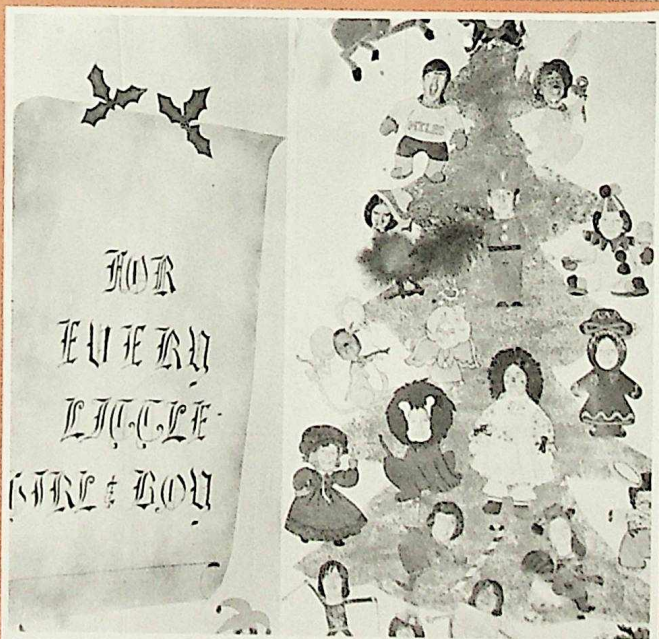 FOR
EVERY
LITTLE
GIRL & BOY
MYLES